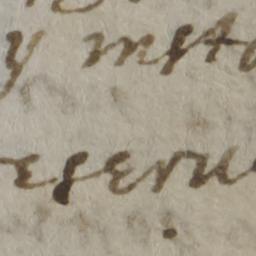 y insta
reseru